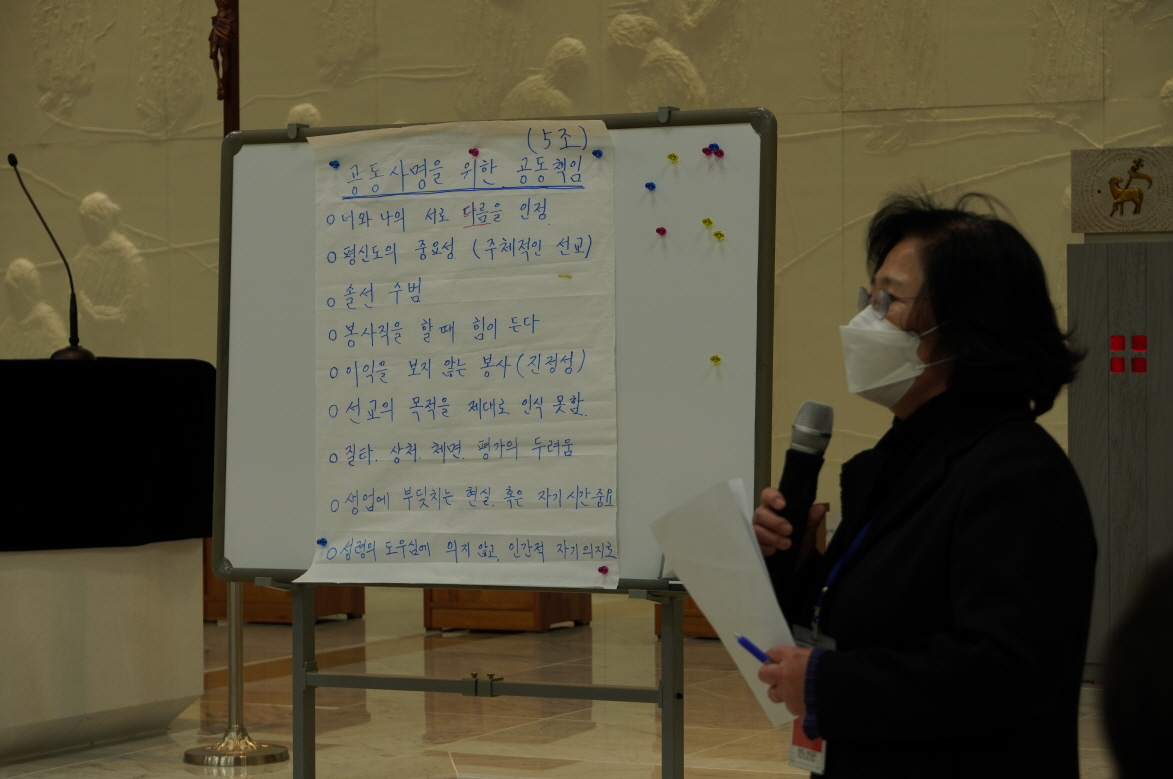 (5조)
공동사명을 위한 공동책임
○ 너와 나의 서로 다름을 인정
○ 평신도의 중요성 (주체적인 선교)
○ 솔선 수범
○ 봉사직을 할 때 힘이 든다
○ 이익을 보지 않는 봉사(진정성)
○ 선교의 목적을 제대로 인식 못함.
○ 질타, 상처, 체면, 평가의 두려움
○ 생업에 부딪치는 현실, 혹은 자기시간 중요
○ 성령의 도우심에 의지 않고, 인간적 자기의지로